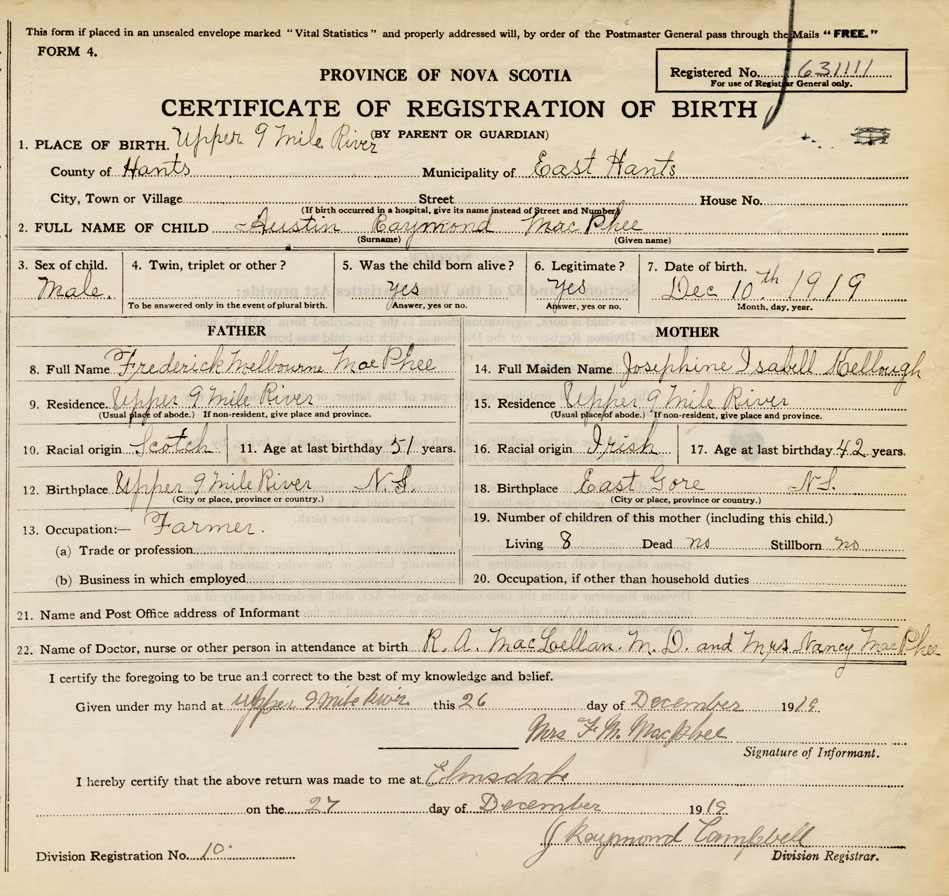 This form if placed in an unsealed envelope marked "Vital Statistics" and properly addressed will, by order of the Postmaster General pass through the Mails "FREE."
FORM 4.
PROVINCE OF NOVA SCOTIA
Registered No. 631111
For use of Registrar General only.
CERTIFICATE OF REGISTRATION OF BIRTH
(BY PARENT OR GUARDIAN)
1. PLACE OF BIRTH. Upper 9 Mile River
County of Hants Municipality of East Hants
City, Town or Village Street House No.
(If birth occurred in a hospital, give its name instead of Street and Number)
2. FULL NAME OF CHILD Austin Raymond MacPhee
(Surname) (Given name)
3. Sex of child. 4. Twin, triplet or other? 5. Was the child born alive? 6. Legitimate? 7. Date of birth.
Male. yes yes Dec 10th 1919
To be answered only in the event of plural birth. Answer, yes or no. Answer, yes or no. Month, day, year.
FATHER MOTHER
8. Full Name Frederick Melbourne MacPhee 14. Full Maiden Name Josephine Isabell Kellough
9. Residence. Upper 9 Mile River 15. Residence Upper 9 Mile River
(Usual place of abode.) If non-resident, give place and province. (Usual place of abode.) If non-resident, give place and province.
10. Racial origin Scotch 11. Age at last birthday 51 years. 16. Racial origin Irish 17. Age at last birthday 42 years.
12. Birthplace Upper 9 Mile River N.S. 18. Birthplace East Gore N.S.
(City or place, province or country.) (City or place, province or country.)
13. Occupation:— Farmer. 19. Number of children of this mother (including this child.)
(a) Trade or profession Living 8 Dead no Stillborn no
(b) Business in which employed 20. Occupation, if other than household duties
21. Name and Post Office address of Informant
22. Name of Doctor, nurse or other person in attendance at birth R. A. MacLellan. M. D. and Mrs Nancy MacPhee
I certify the foregoing to be true and correct to the best of my knowledge and belief.
Given under my hand at Upper 9 Mile River this 26 day of December 1919.
Mrs F. M. MacPhee
Signature of Informant.
I hereby certify that the above return was made to me at Elmsdale
on the 27 day of December 1919
J Raymond Campbell
Division Registration No. 10. Division Registrar.